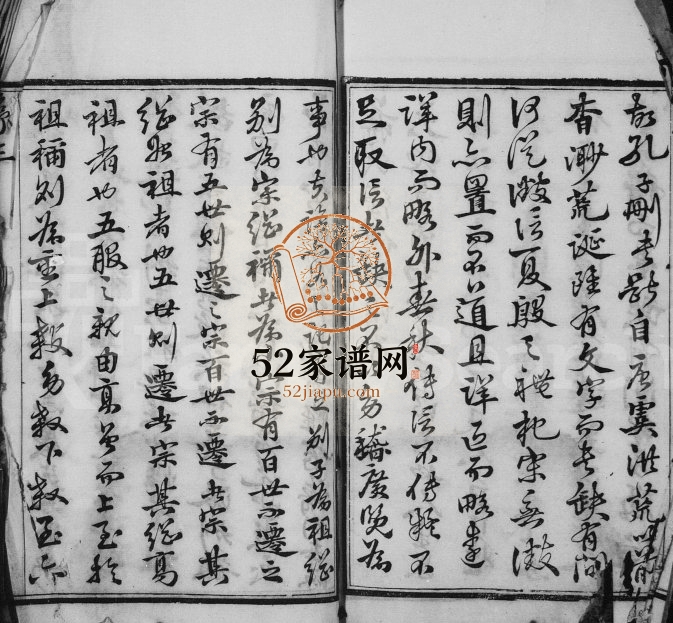 故孔子刪書斷自唐虞洪荒
杳渺荒誕雖有文字而書缺有間
何從徵信夏殷之禮杞宋無徵
則亦置而不道且詳近而略遠
詳內而略外春秋傳信不傳疑不
足取信其缺 博稽廣覽為
事也 別子為祖繼
別為宗繼禰者為小宗有百世不遷之
宗有五世則遷之宗百世不遷者宗其
繼別祖者也五世則遷者宗其繼高
祖者也五服之親由高曾而上至於
祖禰則為重上殺旁殺下殺至六
序三
52家谱网
52jiapu.com